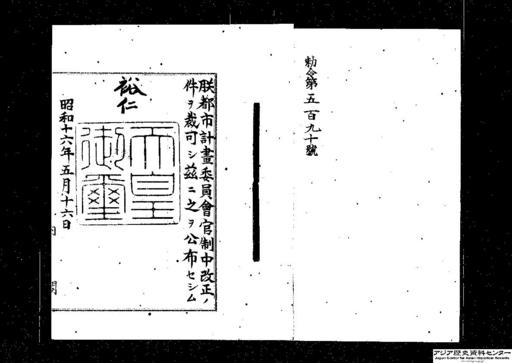 勅令第五百九十號
朕都市計畫委員會官制中改正ノ
件ヲ裁可シ茲ニ之ヲ公布セシム
裕仁
天皇
御璽
昭和十六年五月十六日
内閣
アジア歴史資料センター
Japan Center for Asian Historical Records